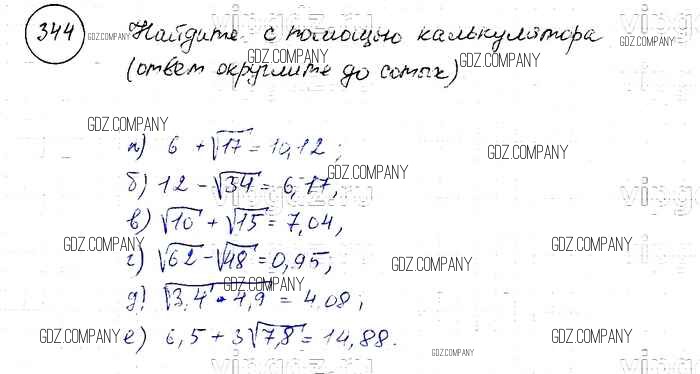 344 Найдите с помощью калькулятора
(ответ округлите до сотых)
а) 6 + √17 = 10,12;
б) 12 - √34 = 6,17,
в) √10 + √15 = 7,04,
г) √62 - √48 = 0,95;
д) √3,4 · 4,9 = 4,08;
е) 6,5 + 3√7,8 = 14,88.
GDZ.COMPANY
GDZ.COMPANY
GDZ.COMPANY
GDZ.COMPANY
GDZ.COMPANY
GDZ.COMPANY
GDZ.COMPANY
GDZ.COMPANY
GDZ.COMPANY
GDZ.COMPANY
GDZ.COMPANY
GDZ.COMPANY
GDZ.COMPANY
vipgdz.ru